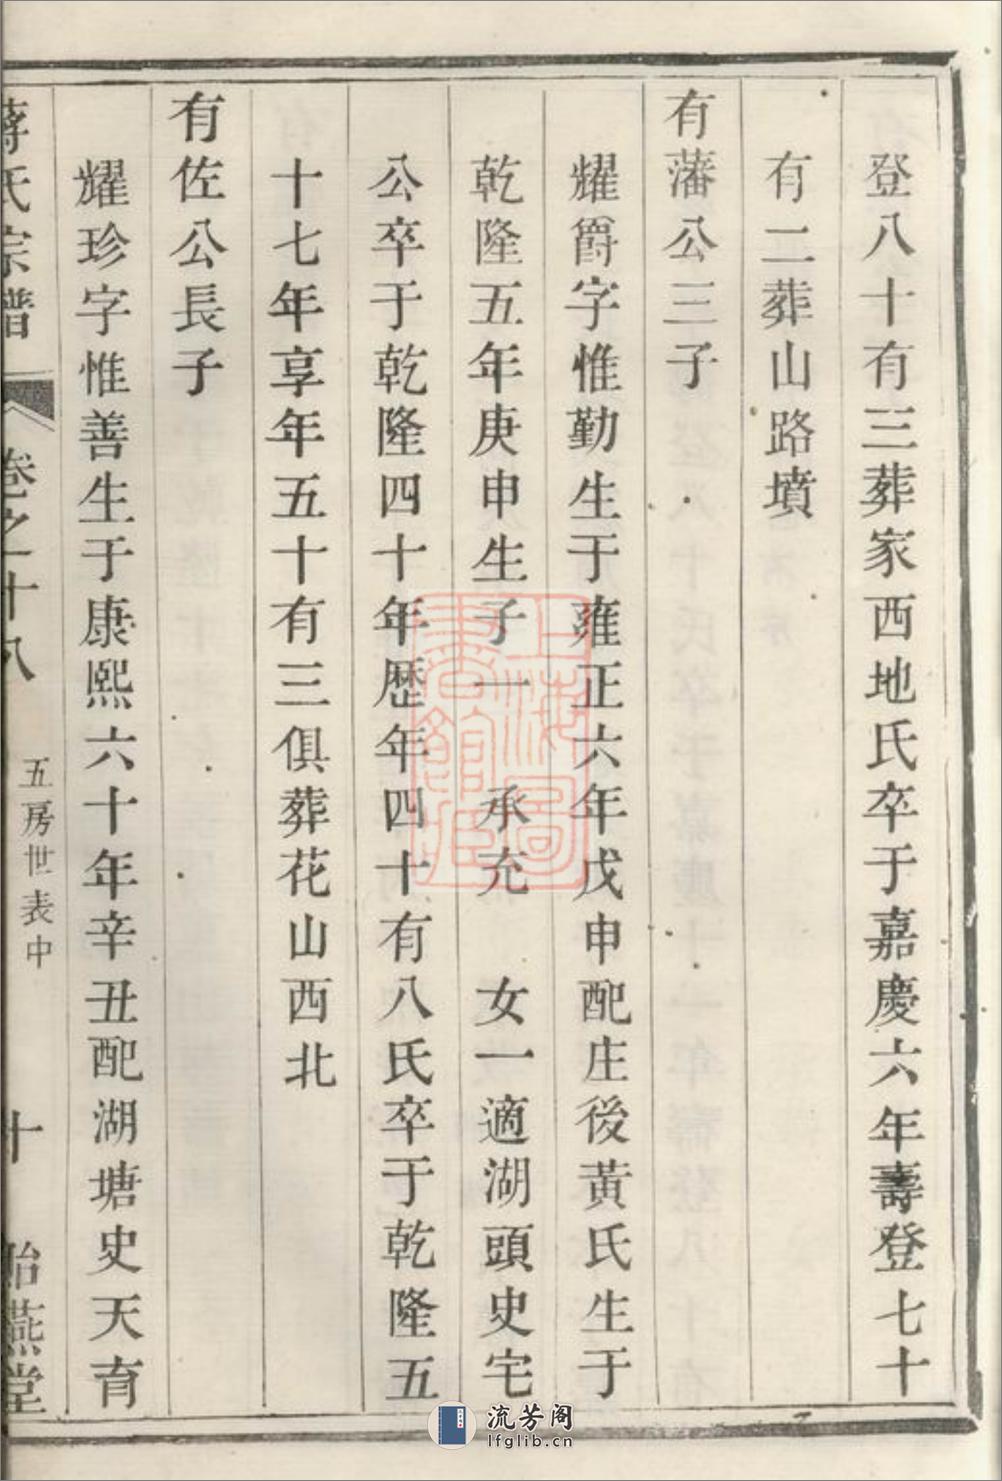 登八十有三葬家西地氏卒于嘉慶六年壽登七十
有二葬山路墳
有藩公三子
耀爵字惟勤生于雍正六年戊申配庄後黃氏生于
乾隆五年庚申生子一 承充 女一適湖頭史宅
公卒于乾隆四十年歷年四十有八氏卒于乾隆五
十七年享年五十有三俱葬花山西北
有佐公長子
耀珍字惟善生于康熙六十年辛丑配湖塘史天育
蔣氏宗譜 卷之十八 五房世表中 十 貽燕堂
上海圖書館藏
流芳阁
lfglib.cn